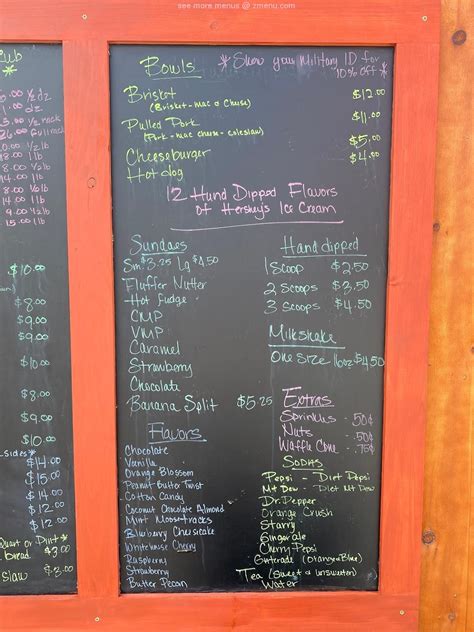 see more menus @ zmenu.com
ub
Bowls
* Show your Military ID for
10% off *
Brisket $12.00
(Brisket-mac & cheese)
Pulled Pork $11.00
(Pork-mac cheese-coleslaw)
Cheeseburger $5.00
Hotdog $4.00
12 Hand Dipped Flavors
of Hershey's Ice Cream
Sundaes
Sm $3.25 Lg $4.50
Fluffer Nutter
Hot fudge
CMP
VMP
Caramel
Strawberry
Chocolate
Banana Split $5.25
Hand dipped
1 Scoop $2.50
2 Scoops $3.50
3 Scoops $4.50
Milkshake
One Size 16oz $4.50
Extras
Sprinkles .50¢
Nuts .50¢
Waffle Cone .75¢
Flavors
Chocolate
Vanilla
Orange Blossom
Peanut Butter Twist
Cotton Candy
Coconut Chocolate Almond
Mint Moosetracks
Blueberry Cheesecake
Whitehouse Cherry
Raspberry
Strawberry
Butter Pecan
Sodas
Pepsi - Diet Pepsi
Mt Dew - Diet Mt Dew
Dr. Pepper
Orange Crush
Starry
Gingerale
Cherry Pepsi
Gaterade (Orange or Blue)
Tea (Sweet & unsweeten)
Water
1/2 dz
dz
1/2 rack
full rack
1/2 lb
1 lb
1/2 lb
1 lb
1/2 lb
1 lb
$10.00
$8.00
$9.00
$9.00
$10.00
$8.00
$9.00
$10.00
-sides*
$14.00
$15.00
$14.00
$12.00
$12.00
bread $3.00
slaw $3.00